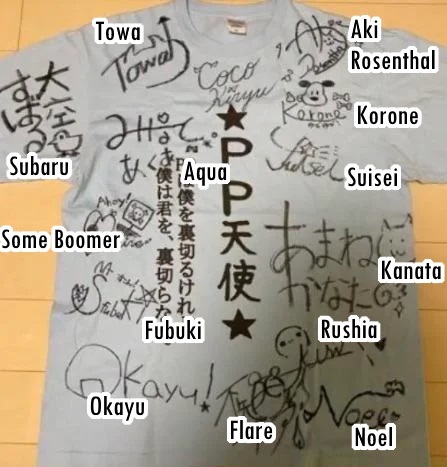 Towa
Aki
Rosenthal
Towa
Coco
Kiryu
Aki
Rosenthal
大空
すばる
Korone
Korone
Subaru
Aqua
Suisei
Suisei
みなと
あくあ
★PP天使★
僕を裏切るけれ
僕は君を、裏切らな
Ahoy!
Some Boomer
あまね
かなた
Kanata
Fubuki
Rushia
Okayu!
Okayu
Flare
Noel
Noel